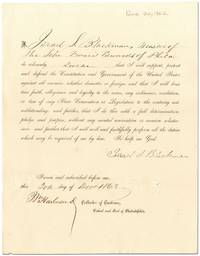 I, Israel S. Blackman, Assessor of
do solemnly swear that I will support, protect
and defend the Constitution and Government of the United States
against all enemies, whether domestic or foreign, and that I will bear
true faith, allegiance and loyalty to the same, any ordinance, resolution,
or law of any State Convention or Legislature to the contrary not-
withstanding; and further that I do this with a full determination,
pledge and purpose, without any mental reservation or evasion whatso-
ever: and further that I will well and faithfully perform all the duties
which may be required of me by law. So help me God.
Israel S. Blackman
Sworn and subscribed before me,
this day of 1862
Collector of Customs,
District and Port of Philadelphia.